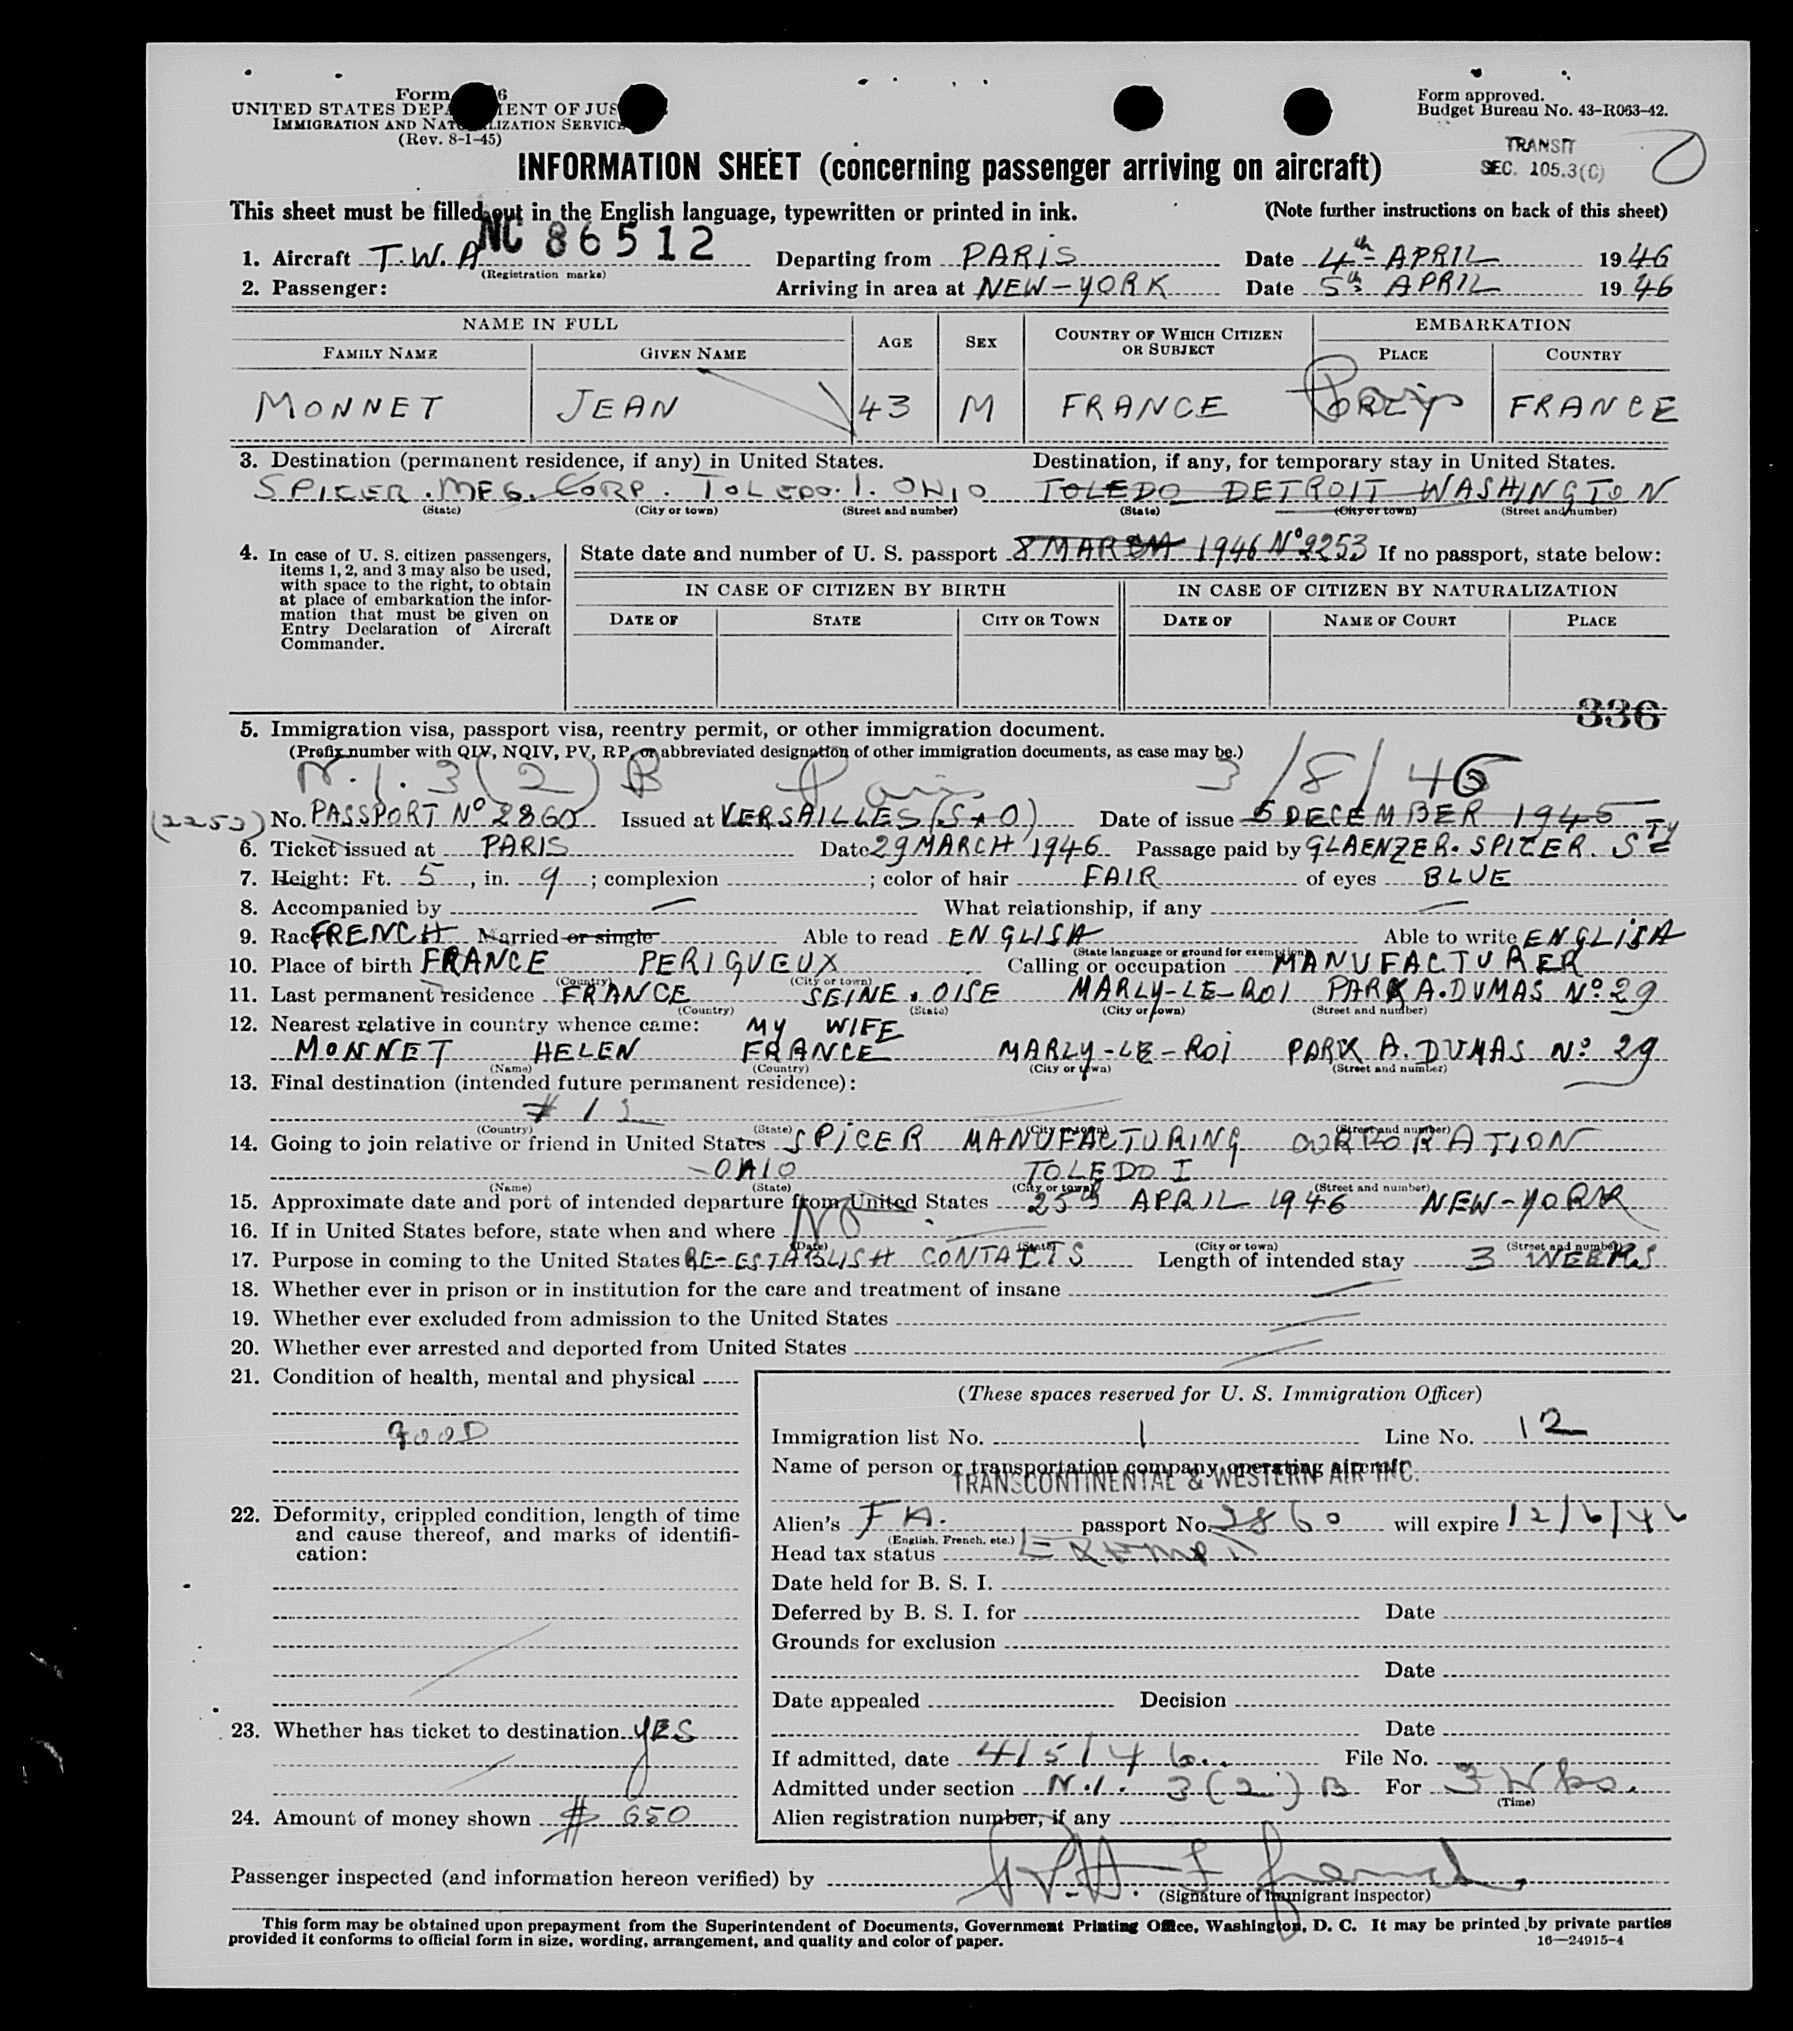 Form 6
UNITED STATES DEP MENT OF JUS
IMMIGRATION AND NATURALIZATION SERVICE
(Rev. 8-1-45)
Form approved.
Budget Bureau No. 43-R063-42.
TRANSIT
SEC. 105.3(C)
INFORMATION SHEET (concerning passenger arriving on aircraft)
This sheet must be filled out in the English language, typewritten or printed in ink. (Note further instructions on back of this sheet)
1. Aircraft T.W.A NC 86512 Departing from PARIS Date 4th APRIL 1946
(Registration marks)
2. Passenger: Arriving in area at NEW-YORK Date 5th APRIL 1946
NAME IN FULL AGE SEX COUNTRY OF WHICH CITIZEN OR SUBJECT EMBARKATION
FAMILY NAME GIVEN NAME PLACE COUNTRY
MONNET JEAN 43 M FRANCE ORLY Paris FRANCE
3. Destination (permanent residence, if any) in United States. Destination, if any, for temporary stay in United States.
SPICER. MFG. CORP. TOLEDO. 1. OHIO TOLEDO DETROIT WASHINGTON
(State) (City or town) (Street and number) (State) (City or town) (Street and number)
4. In case of U. S. citizen passengers, items 1, 2, and 3 may also be used, with space to the right, to obtain at place of embarkation the information that must be given on Entry Declaration of Aircraft Commander.
State date and number of U. S. passport 8 MARCH 1946 No 2253 If no passport, state below:
IN CASE OF CITIZEN BY BIRTH IN CASE OF CITIZEN BY NATURALIZATION
DATE OF STATE CITY OR TOWN DATE OF NAME OF COURT PLACE
336
5. Immigration visa, passport visa, reentry permit, or other immigration document.
(Prefix number with QIV, NQIV, PV, RP, or abbreviated designation of other immigration documents, as case may be.)
N.I. 3(2)B Paris 3/8/46
(2253) No. PASSPORT No 2860 Issued at VERSAILLES (S & O) Date of issue 6 DECEMBER 1945
6. Ticket issued at PARIS Date 29 MARCH 1946 Passage paid by GLAENZER. SPICER. STY
7. Height: Ft. 5, in. 9; complexion ; color of hair FAIR of eyes BLUE
8. Accompanied by — What relationship, if any —
9. Race FRENCH Married or single Able to read ENGLISH Able to write ENGLISH
(State language or ground for exemption)
10. Place of birth FRANCE PERIGUEUX Calling or occupation MANUFACTURER
(Country) (City or town)
11. Last permanent residence FRANCE SEINE & OISE MARLY-LE-ROI PARK A. DUMAS No. 29
(Country) (State) (City or town) (Street and number)
12. Nearest relative in country whence came: MY WIFE
MONNET HELEN FRANCE MARLY-LE-ROI PARK A. DUMAS No. 29
(Name) (Country) (City or town) (Street and number)
13. Final destination (intended future permanent residence):
(Country) (State) (City or town) (Street and number)
14. Going to join relative or friend in United States SPICER MANUFACTURING CORPORATION
OHIO TOLEDO I
(Name) (State) (City or town) (Street and number)
15. Approximate date and port of intended departure from United States 25th APRIL 1946 NEW-YORK
16. If in United States before, state when and where NO
(Date) (State) (City or town) (Street and number)
17. Purpose in coming to the United States RE-ESTABLISH CONTACTS Length of intended stay 3 WEEKS
18. Whether ever in prison or in institution for the care and treatment of insane
19. Whether ever excluded from admission to the United States
20. Whether ever arrested and deported from United States
21. Condition of health, mental and physical
GOOD
22. Deformity, crippled condition, length of time and cause thereof, and marks of identification:
23. Whether has ticket to destination YES
24. Amount of money shown $ 650
(These spaces reserved for U. S. Immigration Officer)
Immigration list No. 1 Line No. 12
Name of person or transportation company operating aircraft
TRANSCONTINENTAL & WESTERN AIR INC.
Alien's FR. passport No. 2860 will expire 12/6/46
(English, French, etc.)
Head tax status EXEMPT
Date held for B. S. I.
Deferred by B. S. I. for Date
Grounds for exclusion
Date
Date appealed Decision
Date
If admitted, date 4/5/46 File No.
Admitted under section N.I. 3(2)B For 3 Wks.
(Time)
Alien registration number, if any
Passenger inspected (and information hereon verified) by
(Signature of immigrant inspector)
This form may be obtained upon prepayment from the Superintendent of Documents, Government Printing Office, Washington, D. C. It may be printed by private parties
provided it conforms to official form in size, wording, arrangement, and quality and color of paper.
16—24915-4